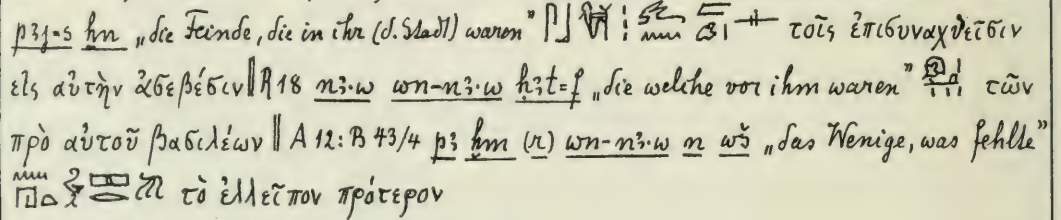 pꜣj=s ẖn „die Feinde, die in ihr (d. Stadt) waren” τοῖς ἐπισυναχθεῖσιν
εἰς αὐτὴν ἀσεβέσιν ‖ R 18 nꜣ·w wn-nꜣ·w ḥꜣt=f „die welche vor ihm waren” τῶν
πρὸ αὐτοῦ βασιλέων ‖ A 12 : B 43/4 pꜣ ḫm (r) wn-nꜣ·w n wš „das Wenige, was fehlte”
τὸ ἐλλεῖπον πρότερον